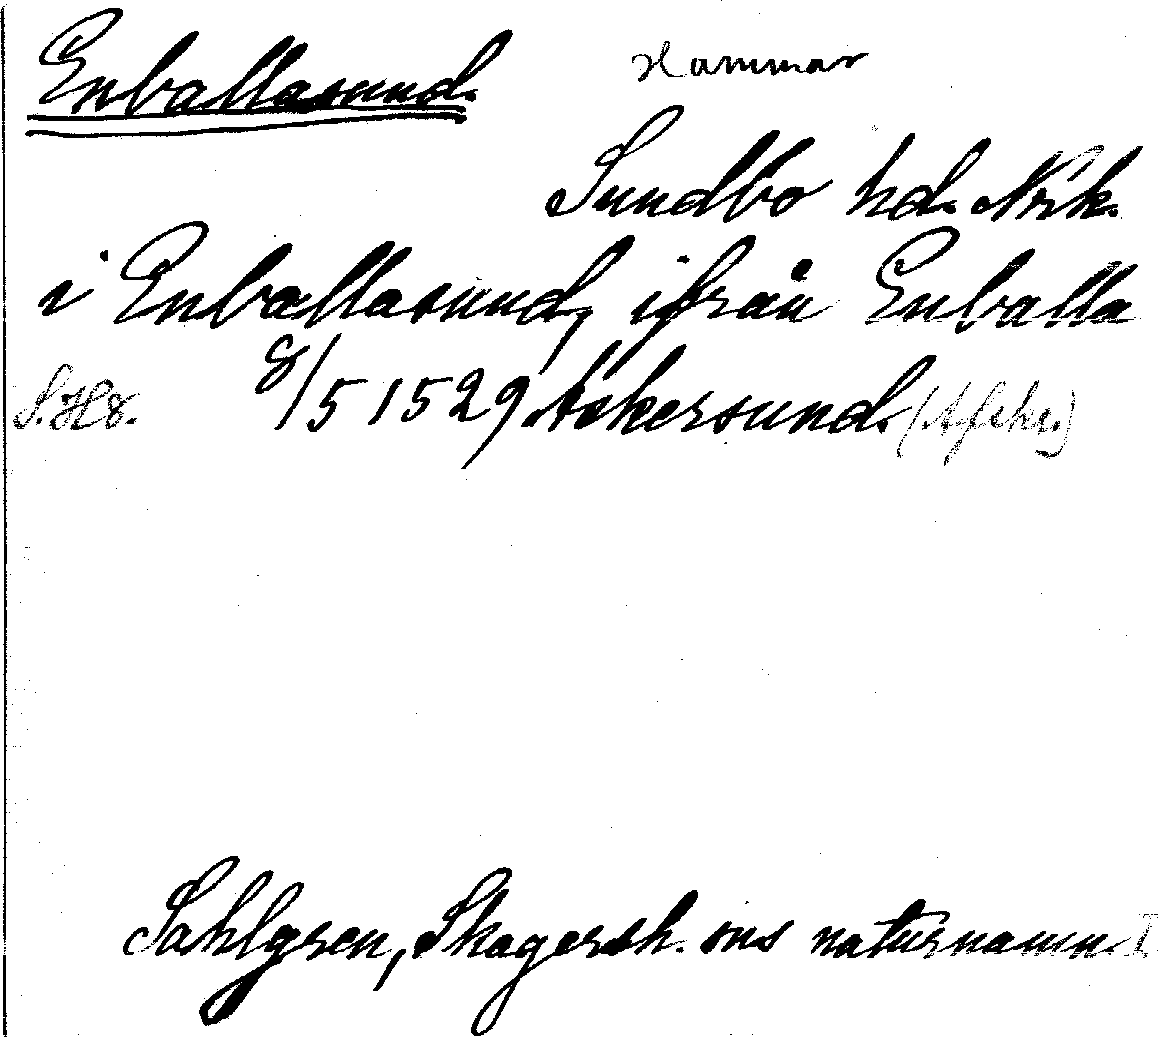 Enballasund.
Hammar
Sundbo hd. Nrk.
i Enballasund, ifrån Enballa
S. H8. 8/5 1529 Askersund. (Afskr.)
Sahlgren, Skagersh. ons naturnamn I.